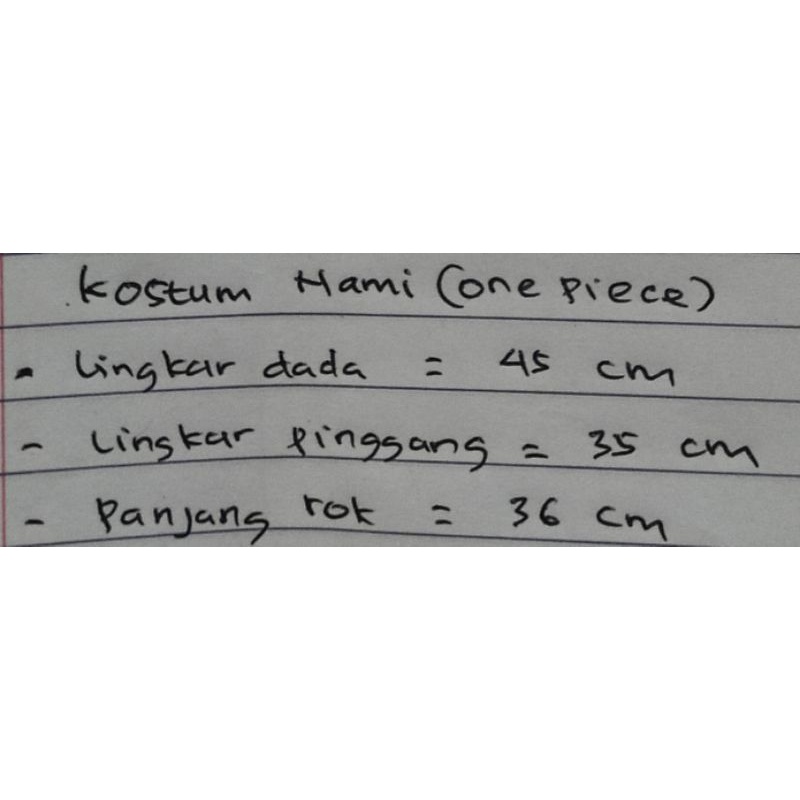 Kostum Nami (one piece)
- Lingkar dada = 45 cm
- Lingkar pinggang = 35 cm
- Panjang rok = 36 cm